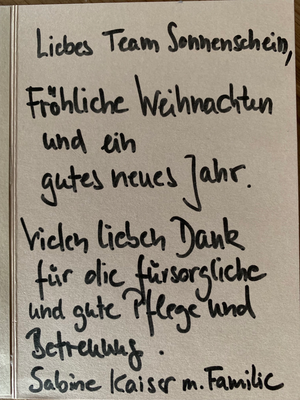 Liebes Team Sonnenschein,
Fröhliche Weihnachten
und ein
gutes neues Jahr.
Vielen lieben Dank
für die fürsorgliche
und gute Pflege und
Betreuung.
Sabine Kaiser m. Familie